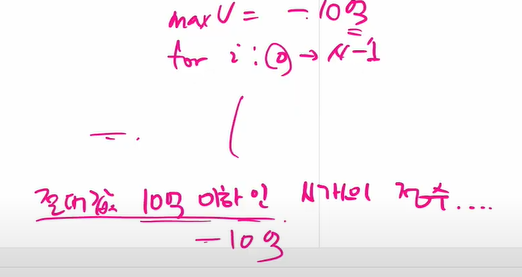 maxV = -10억
for i : 0 → N-1
절대값 10억 이하인 N개의 정수....
-10억